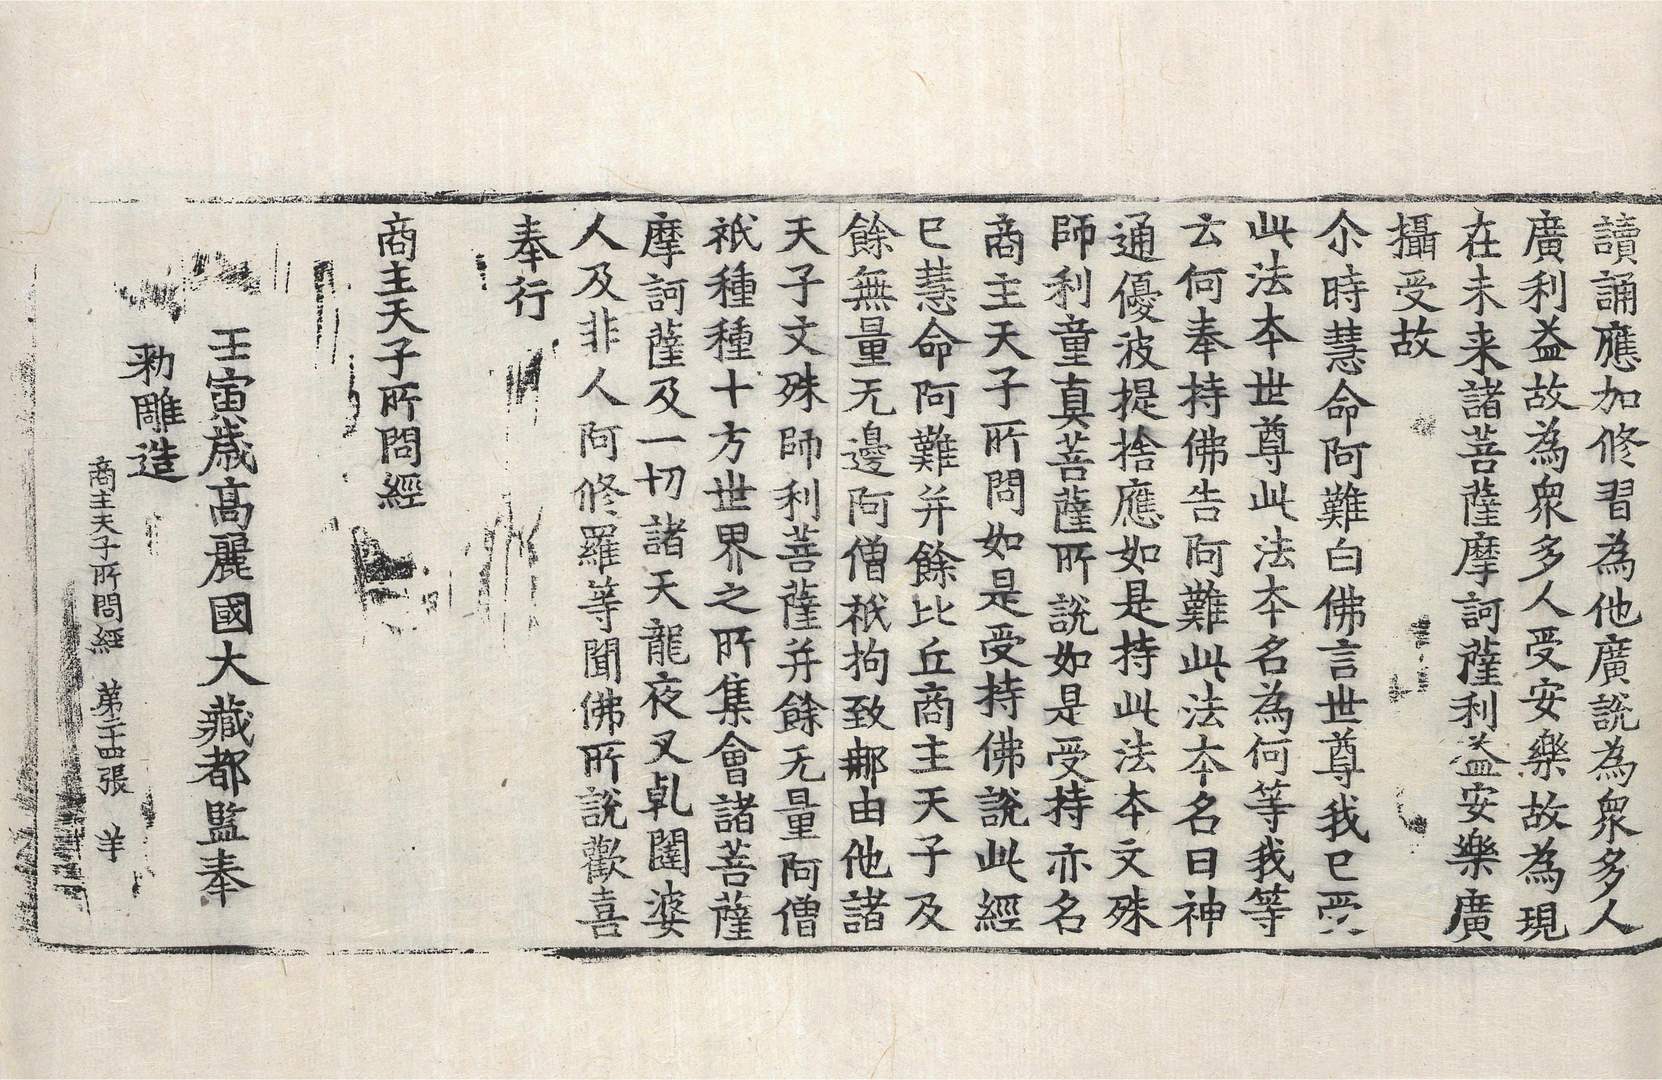 讀誦應加修習為他廣說為衆多人
廣利益故為衆多人受安樂故為現
在未来諸菩薩摩訶薩利益安樂廣
攝受故
尒時慧命阿難白佛言世尊我已受
此法夲世尊此法夲名為何等我等
云何奉持佛告阿難此法夲名曰神
通優波提捨應如是持此法夲文殊
師利童真菩薩所說如是受持亦名
商主天子所問如是受持佛說此經
已慧命阿難并餘比丘商主天子及
餘無量无邊阿僧祇拘致那由他諸
天子文殊師利菩薩并餘无量阿僧
祇種種十方世界之所集會諸菩薩
摩訶薩及一切諸天龍夜叉乹闥婆
人及非人阿修羅等聞佛所說歡喜
奉行
商主天子所問經
壬寅歲高麗國大藏都監奉
勑雕造
商主天子所問經 苐二十四張 羊